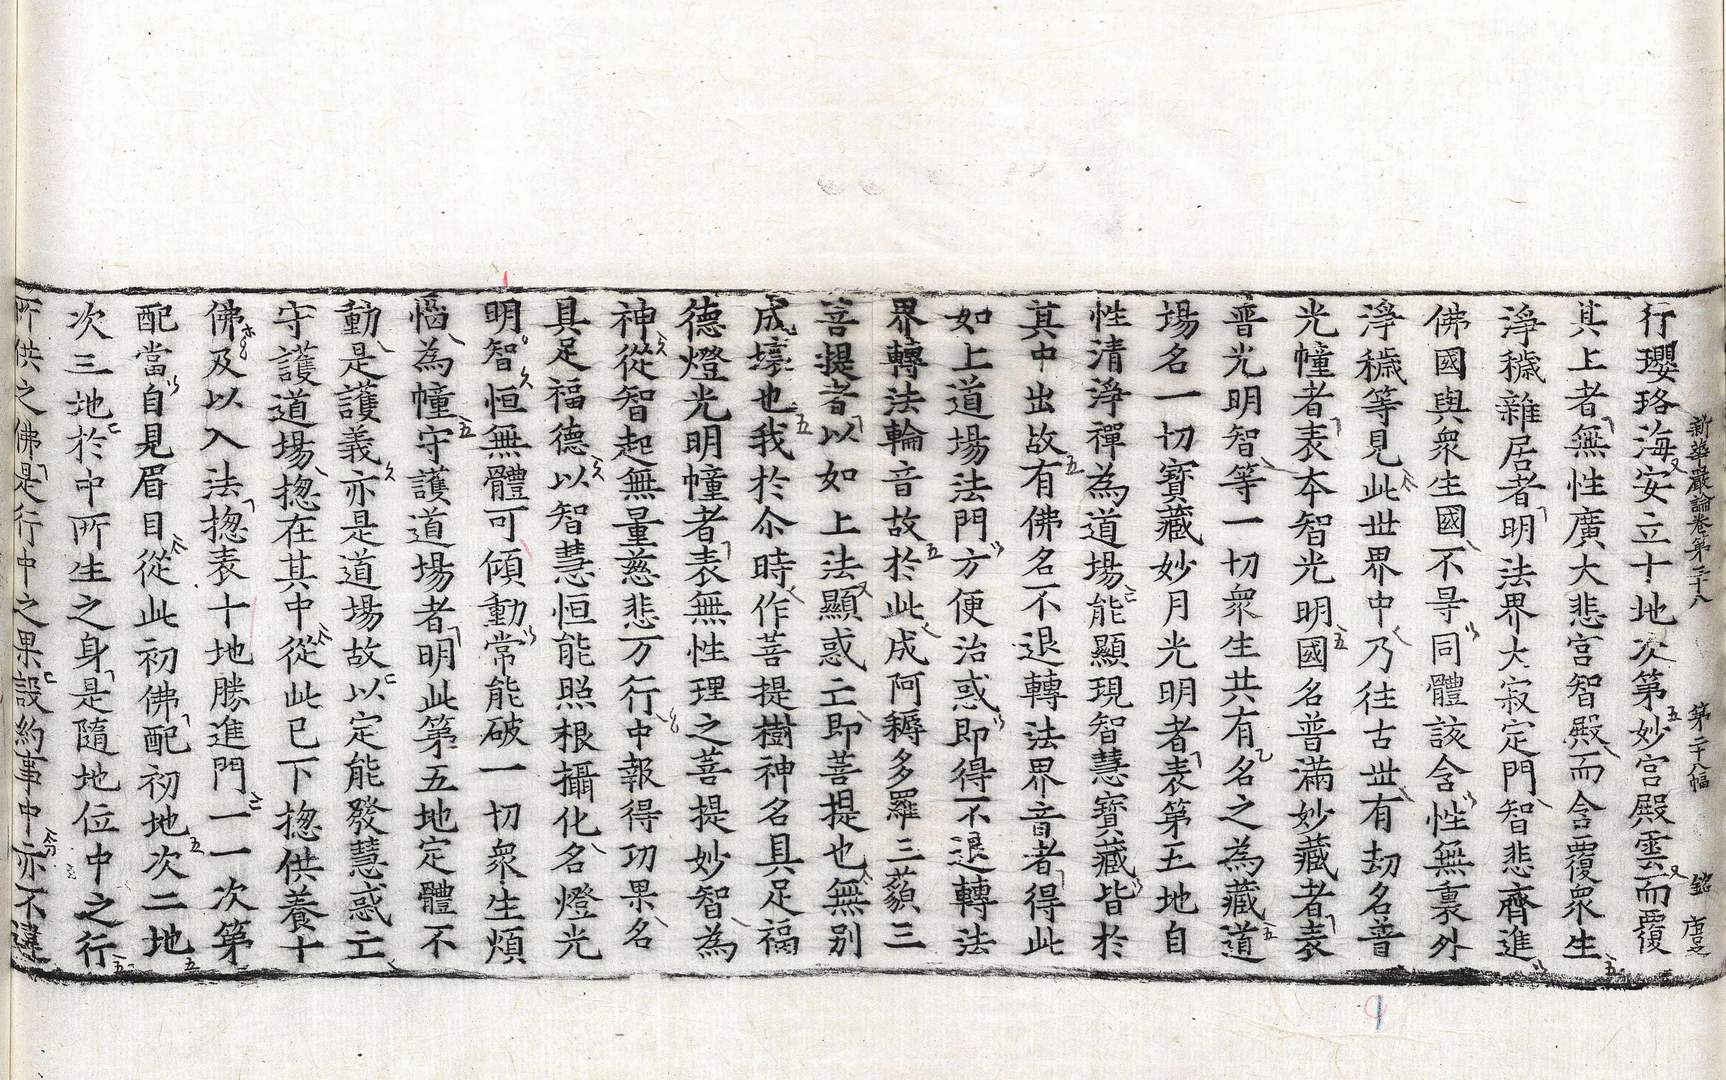 新華嚴論卷第三十八 第二十八幅 銘
行瓔珞海安立十地次第妙宮殿雲而覆
其上者無性廣大悲宮智殿而含覆衆生
淨穢雜居者明法界大寂定門智悲齊進
佛國與衆生國不㝵同體該含性無裏外
淨穢等見此世界中乃往古世有劫名普
光幢者表本智光明國名普滿妙藏者表
普光明智等一切衆生共有名之為藏道
場名一切寶藏妙月光明者表第五地自
性清淨禪為道場能顯現智慧寶藏皆於
其中出故有佛名不退轉法界音者得此
如上道場法門方便治惑即得不退轉法
界轉法輪音故於此成阿耨多羅三藐三
菩提者以如上法顯惑亡即菩提也無別
成壞也我於尒時作菩提樹神名具足福
德燈光明幢者表無性理之菩提妙智為
神從智起無量慈悲万行中報得功果名
具足福德以智慧恒能照根攝化名燈光
明智恒無體可傾動常能破一切衆生煩
惱為幢守護道場者明此第五地定體不
動是護義亦是道場故以定能發慧惑亡
守護道場揔在其中從此已下揔供養十
佛及以入法揔表十地勝進門一一次第
配當自見眉目從此初佛配初地次二地
次三地於中所生之身是隨地位中之行
所供之佛是行中之果設約事中亦不違